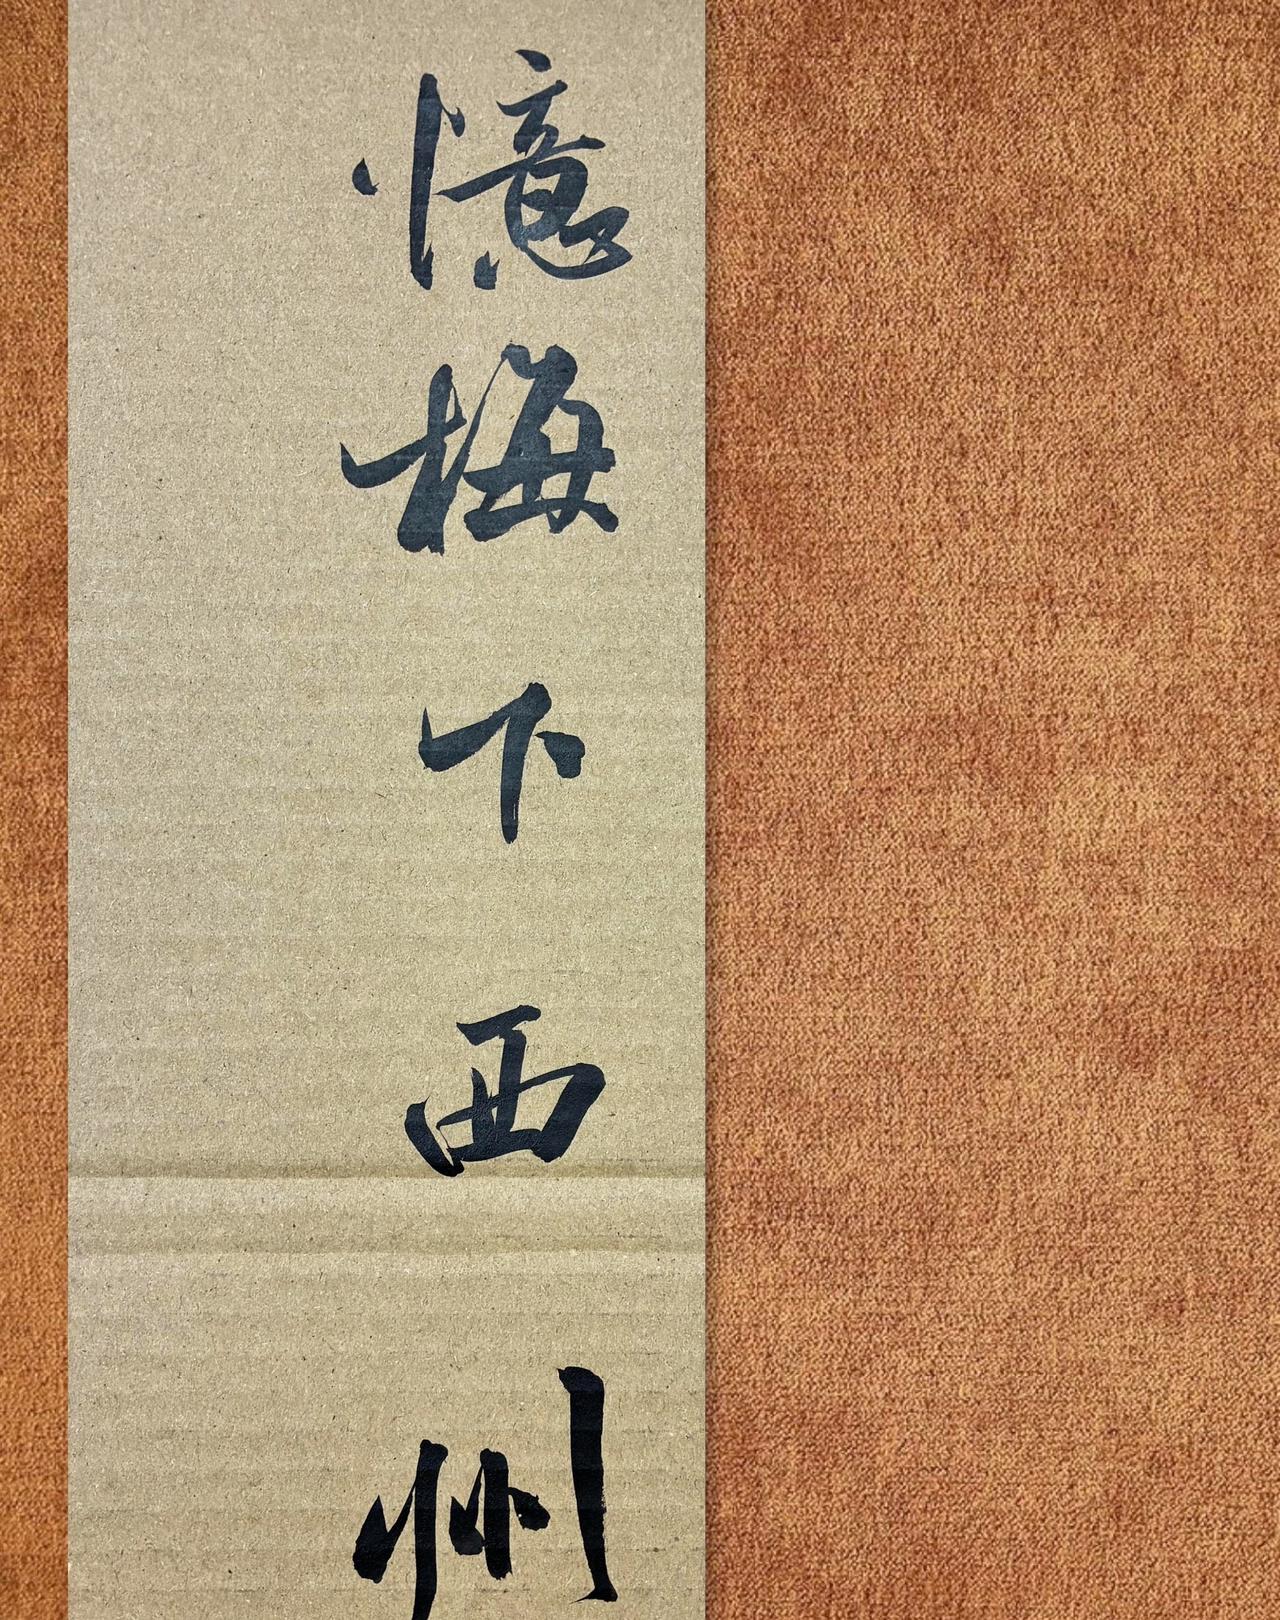 憶梅下西州